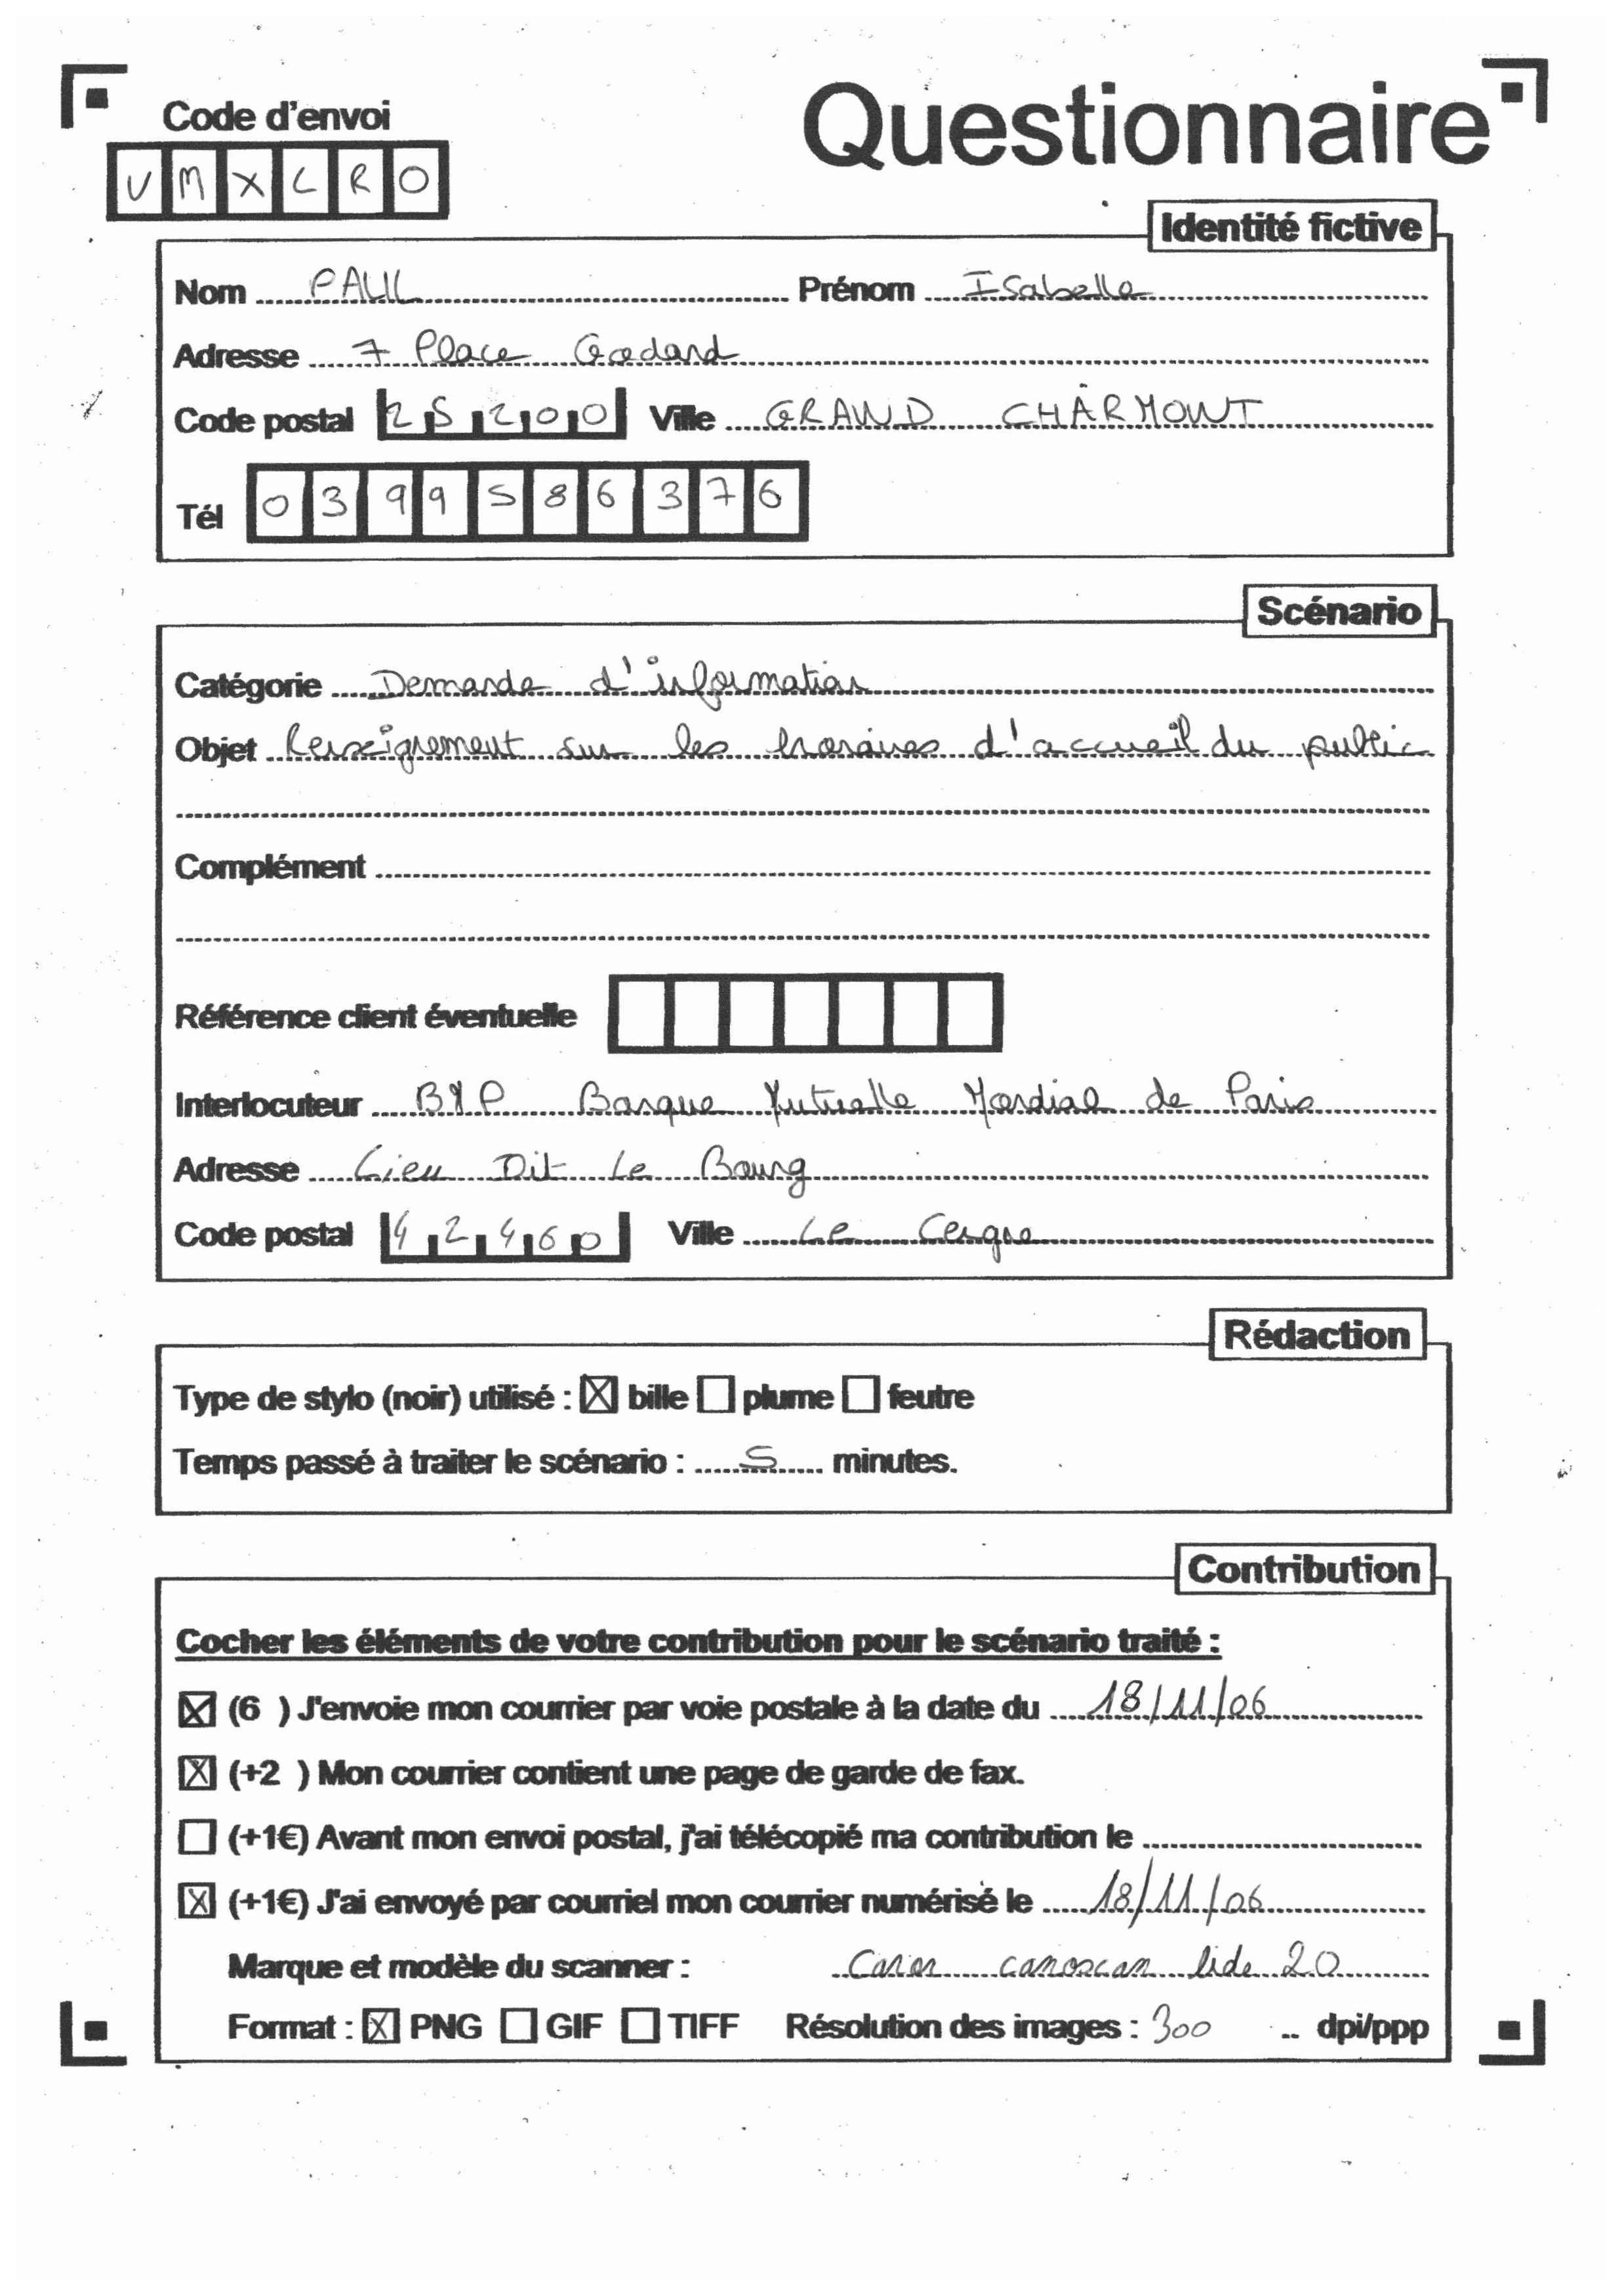 Code d'envoi
Questionnaire
V M X L R O
Identité fictive
Nom PAUL Prénom Isabelle
Adresse 7 Place Godard
Code postal 25200 Ville GRAND CHARMONT
Tél 0399586376
Scénario
Catégorie Demande d'information
Objet Renseignement sur les horaires d'accueil du public
Complément
Référence client éventuelle
Interlocuteur BMP Banque Mutuelle Mondial de Paris
Adresse Lieu Dit Le Bourg
Code postal 42460 Ville Le Cergne
Rédaction
Type de stylo (noir) utilisé : ☒ bille ☐ plume ☐ feutre
Temps passé à traiter le scénario : 5 minutes.
Contribution
Cocher les éléments de votre contribution pour le scénario traité :
☒ (6 ) J'envoie mon courrier par voie postale à la date du 18/11/06
☒ (+2 ) Mon courrier contient une page de garde de fax.
☐ (+1€) Avant mon envoi postal, j'ai télécopié ma contribution le
☒ (+1€) J'ai envoyé par courriel mon courrier numérisé le 18/11/06
Marque et modèle du scanner : Canon canoscan lide 20
Format : ☒ PNG ☐ GIF ☐ TIFF Résolution des images : 300 .. dpi/ppp